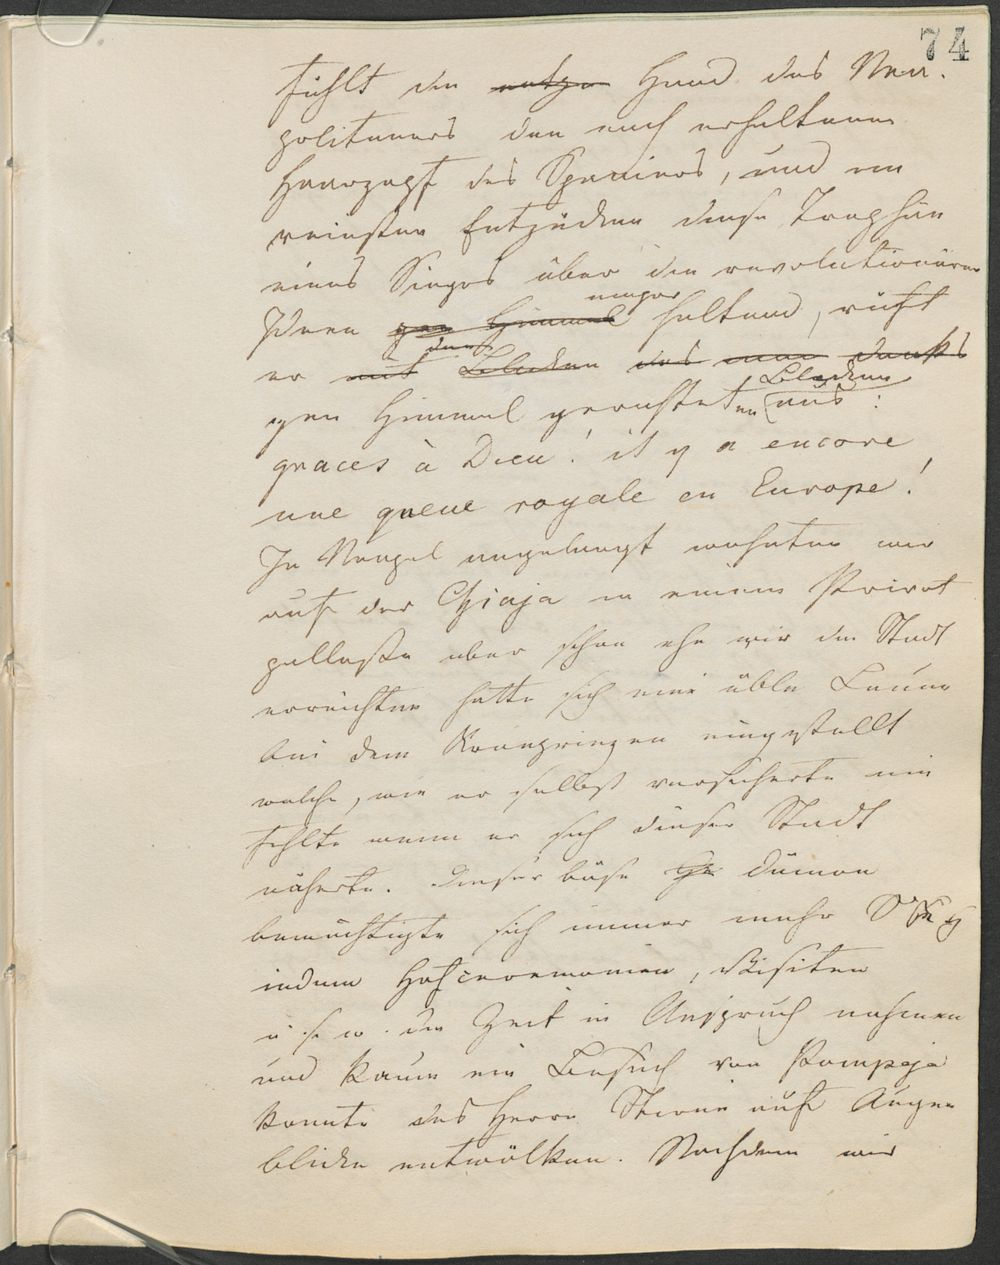 74
fühlt die Hand des Nea-
politaners den noch erhaltenen
Haarzopf des Spaniers, und im
reinsten Entzücken diese Trophäe
eines Sieges über die revolutionären
Ideen gen Himmel empor haltend, ruft
er mit Blicken des
gen Himmel gerichteten Blicken aus:
graces à Dieu! il y a encore
une queue royale en Europe!
In Neapel angelangt wohnten wir
auf der Chiaja in einem Privat
pallaste aber schon ehe wir die Stadt
erreichten hatte sich eine üble Laune
bei dem Kronprinzen eingestellt
welche, wie er selbst versicherte nie
fehlte wenn er sich dieser Stadt
näherte. Dieser böse Dämon
bemächtigte sich immer mehr
indem Hofceremonien, Visiten
u. s. w. die Zeit in Anspruch nahmen
und kaum ein Besuch von Pompeja
konnte des Herrn Stirne auf Augen
blicke entwölken. Nachdem wir